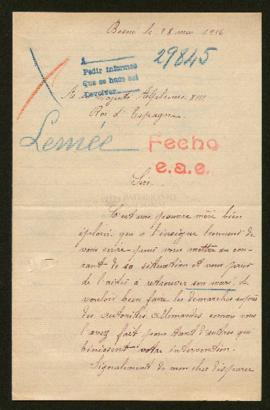 le 18 mai 1916
29845
A
Pedir informes
Que se haga así
Devolver
A Sa Majesté Alphonse XIII
Roi d'Espagne
Lemée
Fecho
e.a.e.
Sire,
C'est une pauvre mère bien
éplorée qui a l'insigne honneur de
vous écrire pour vous mettre au cou-
rant de sa situation et vous prier
de l'aider à retrouver son mari, de
vouloir bien faire les démarches auprès
des autorités allemandes comme vous
l'avez fait pour tant d'autres qui
bénissent votre intervention.
Signalement de mon cher disparu